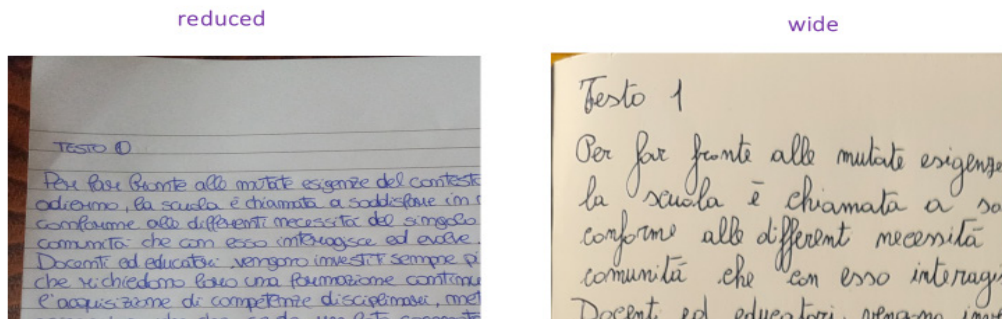 reduced
wide
TESTO 1
Per fare fronte alle mutate esigenze del contesto
odierno, la scuola è chiamata a soddisfare in
conforme alle differenti necessità del singolo
comunità che con esso interagisce ed evolve.
Docenti ed educatori vengono investiti sempre pi
che richiedono loro una formazione continu
l'acquisizione di competenze disciplinari, met
Testo 1
Per far fronte alle mutate esigenze
la scuola è chiamata a so
conforme alle different necessità
comunità che con esso interagis
Docenti ed educatori vengono inve